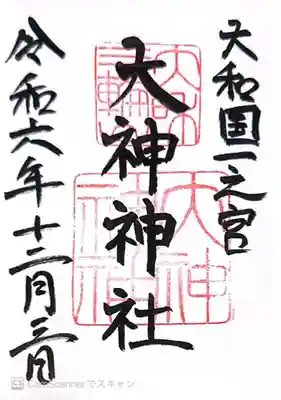 大和国一之宮
大神神社
令和六年十二月三日
CS CamScannerでスキャン